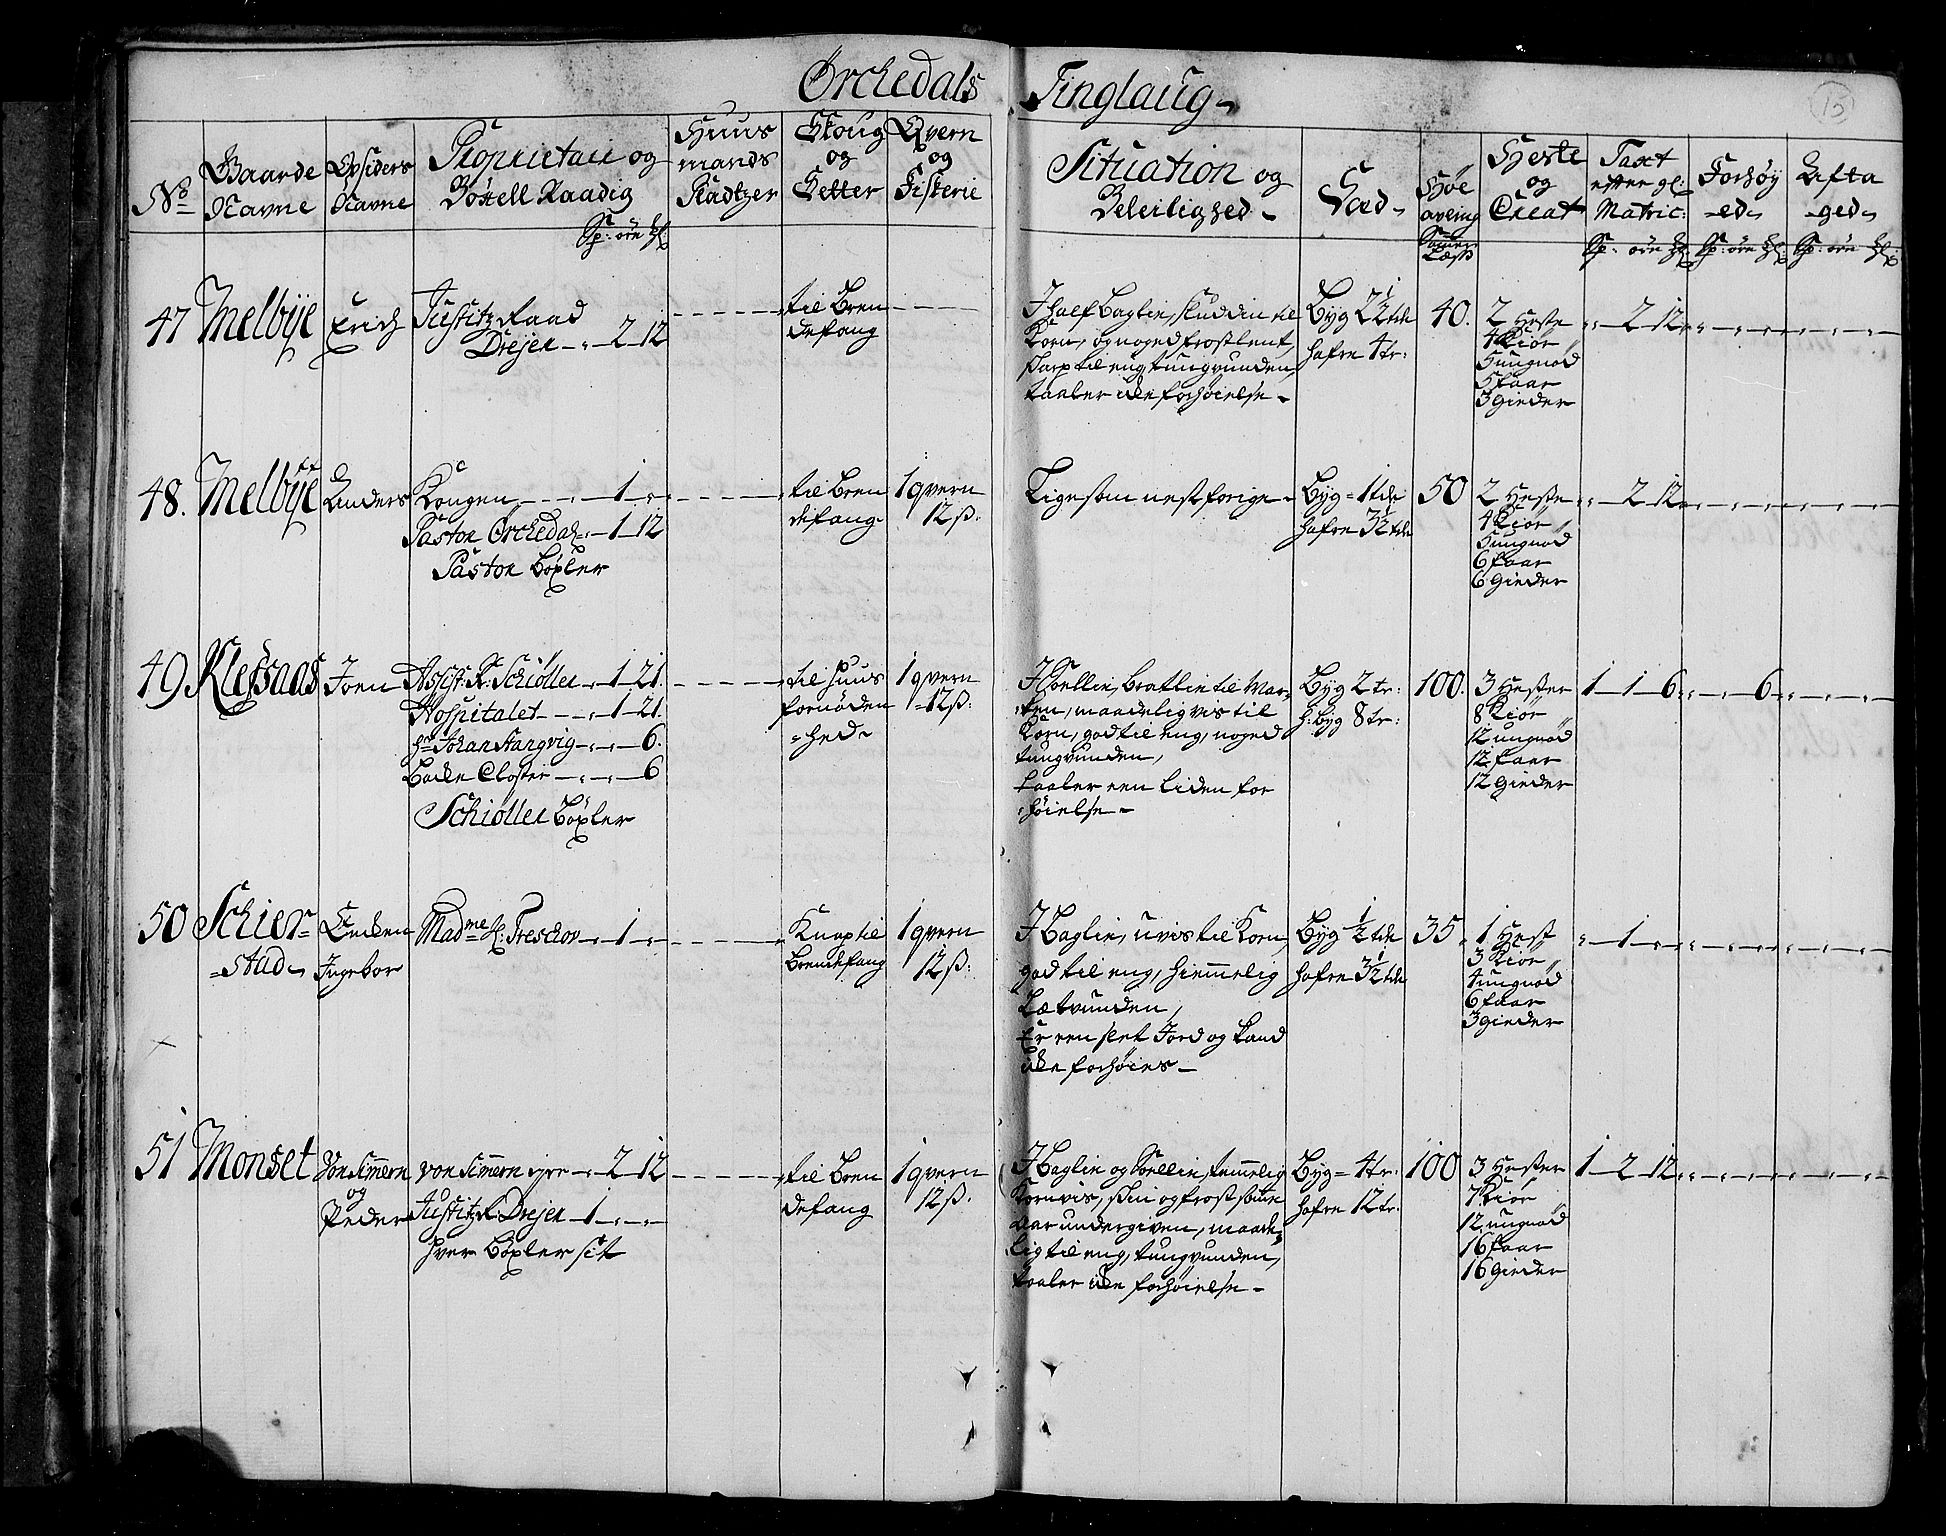 Ørchedals Tinglaug
15
No
Gaarde Navne
Opsiders Navne
Proprietair og Bøxell Raadig
Sp: øre Ml:
Huusmands Pladtzer
Skoug og Setter
Qvern og Fiskerie
Situation og Beleilighed
Sæd
Høe avling
Sommer Læss
Heste og Creat
Taxt efter gl: Matric:
Sp: øre Ml:
Forhøyed
Sp: øre Ml:
Aftaged
Sp: øre Ml:
47 Melbÿe
Erich
Justitz Raad
Drejer 2 12
til Bren
defang
I half Baglie, skudd in til
Korn, og noged frostlent,
skarp til eng, tungvunden,
taaler icke forhøielse
Byg 2½ tde
hafre 4 tr:
40.
2 Heste
4 Kiør
5 ungnød
5 faar
3 gieder
2 12
48. Melbÿe
Anders
Kongen 1
Pastor Ørchedal 1 12
Pastor Bøxler
til Bren
defang
1 qvern
12 ß.
Lige som nest forige
Byg 1 tde
hafre 3½ tde
50
2 Heste
4 Kiør
5 ungnød
6 faar
6 gieder
2 12
49 Klefsaas
Joen
Assist: R: Schiøller 1 21.
Hospitalet 1 21.
hr Johan Stangvig 6.
Backe Closter 6
Schiøller Bøxler
til huus
fornøden
hed
1 qvern
12 ß:
I Soellie, bratlendt til Mar,
ken, maadelig vis til
Korn, god til eng, noged
tungvunden,
taaler een liden for
høielse
Byg 2 tr:
h: byg 8 tr:
100.
3 Hester
8 Kiør
12 ungnød
12 faar
12 gieder
1 1 6
6
50 Schier
stad
Encken
Ingebor
Madme Sl: Treschov 1
Knap til
Brendefang
1 qvern
12 ß:
I Baglie, uvis til Korn,
god til eng, hiemmelig
Lætvunden,
Er een slet Jord og kand
icke forhøies
Byg ½ tde
hafre 3½ tde
35
1 Hest
3 Kiør
4 ungnød
6 faar
3 gieder
1
51 Monset
Von Simern
og
Peder
von Simern ejer 2 12
Justitz R Drejer 1
hver Bøxler sit
til Bren
defang
1 qvern
12 ß.
I Baglie og Soellie, temmelig
Kornvis, skin og frost somme
Aar undergiven, maade
lig til eng, tungvunden,
taaler icke forhøielse
Byg 4 tr:
hafre 12 tr:
100
3 Hester
7 Kiør
12 ungnød
16 faar
16 gieder
1 2 12